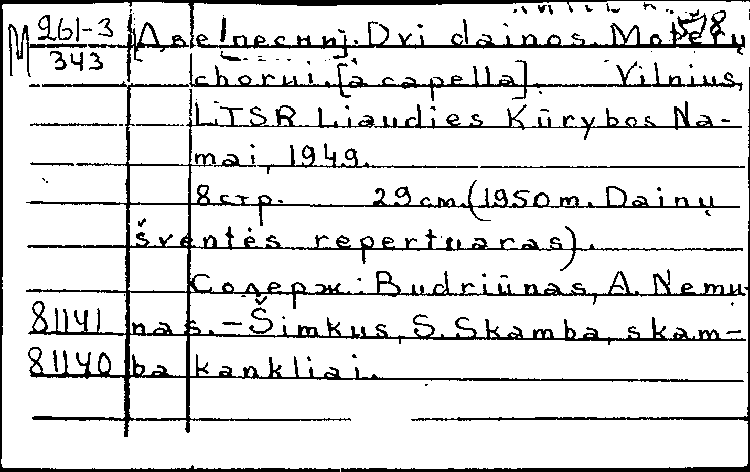 М 261-3 [Две песни]. Dvi dainos. Moterų
343 chorui. [a capella]. Vilnius,
LTSR Liaudies Kūrybos Na-
mai, 1949.
8 стр. 29 cm. (1950 m. Dainų
šventės repertuaras).
Содерж: Budriūnas, A. Nemu-
81141 nas. – Šimkus, S. Skamba, skam-
81140 ba kankliai.